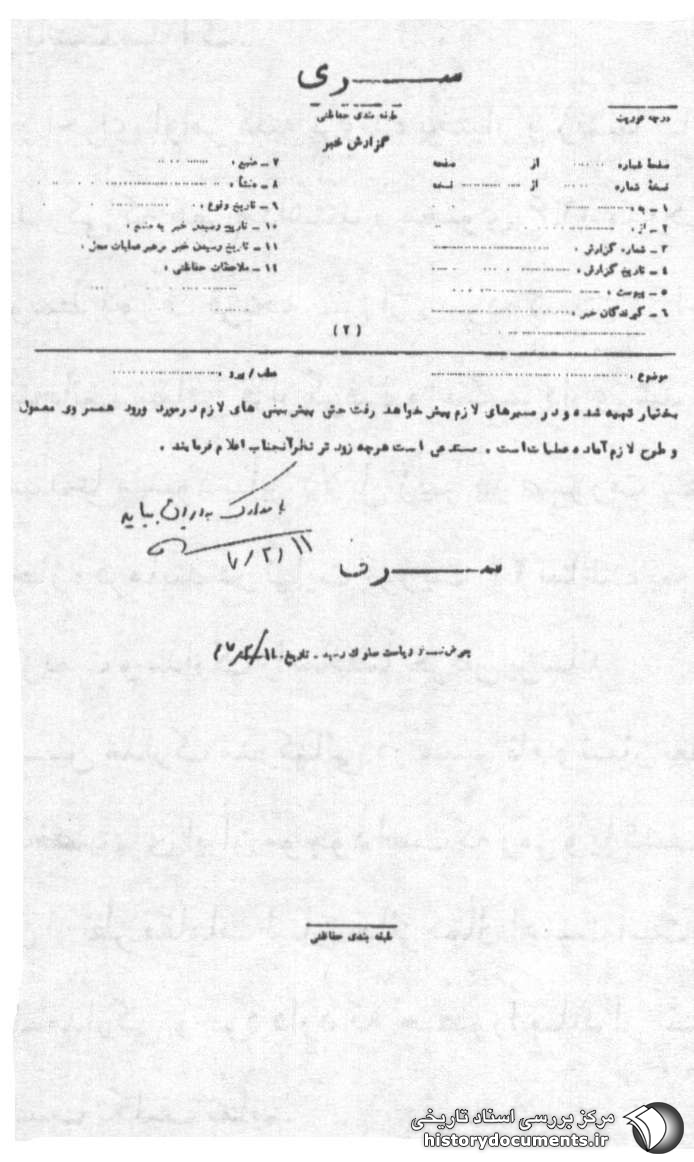 ســـری
طبقه بندی حفاظتی
درجه فوریت
گزارش خبر
صفحهٔ شماره ...... از صفحه
نسخهٔ شماره ...... از ............ نسخه
۱ ـ به :
۲ ـ از :
۳ ـ شماره گزارش :
۴ ـ تاریخ گزارش :
۵ ـ پیوست :
۶ ـ گیرندگان خبر :
۷ ـ منبع :
۸ ـ منشأ :
۹ ـ تاریخ وقوع :
۱۰ ـ تاریخ رسیدن خبر به منبع :
۱۱ ـ تاریخ رسیدن خبر به رهبر عملیات محل :
۱۲ ـ ملاحظات حفاظتی :
(۲)
موضوع :
عطف / پیرو :
بختیار تهیه شده و در مسیرهای لازم پیش خواهد رفت حتی پیش بینی های لازم در مورد ورود همسر وی معمول
و طرح لازم آماده عملیات است . مستدعی است هرچه زود تر نظر آنجناب اعلام فرمایند .
با مدارک به ایران بیاید
۱۱ /۲/
ســـری
بعرض ریاست ساواک رسید . تاریخ
طبقه بندی حفاظتی
مرکز بررسی اسناد تاریخی
historydocuments.ir